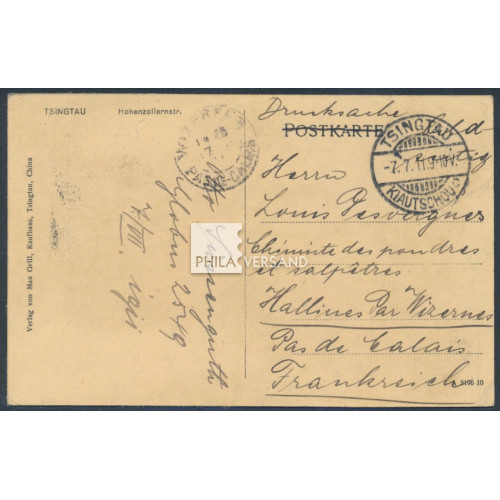 TSINGTAU Hohenzollernstr.
Drucksache
POSTKARTE
TSINGTAU
-7.7.11.9-10V.
KIAUTSCHOU
WIZERNES
PAS-DE-CALAIS
Herrn
Louis Desvergnes
Chimiste des poudres
et salpêtres
Hallines Par Wizernes
Pas de Calais
Frankreich
5196 10
Globus 2549
Verlag von Max Grill, Kaufhaus, Tsingtau, China
PHILA VERSAND